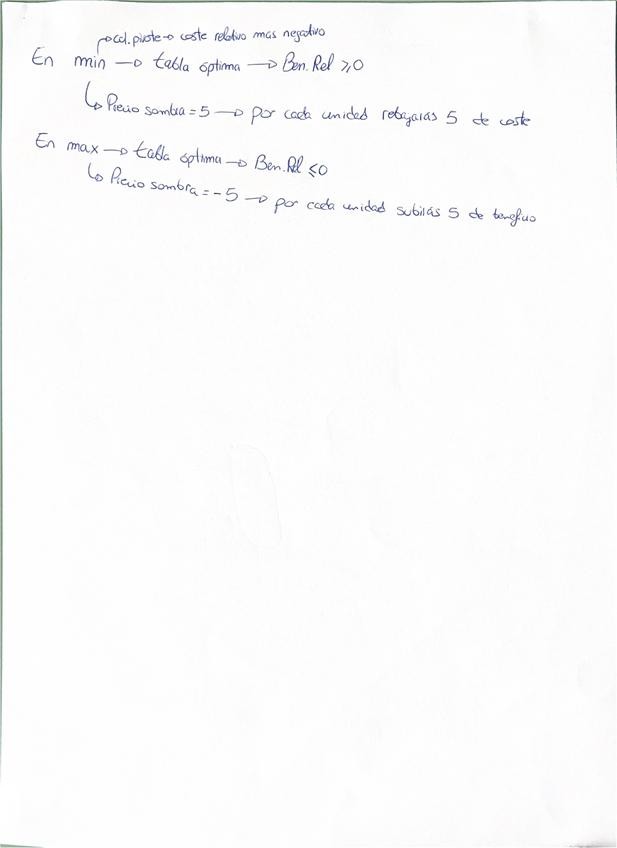 col. pivote → coste relativo mas negativo
En min → tabla óptima → Ben. Rel ≥ 0
↳ Precio sombra = 5 → por cada unidad rebajarás 5 de coste
En max → tabla óptima → Ben. Rel ≤ 0
↳ Precio sombra = - 5 → por cada unidad subirás 5 de beneficio